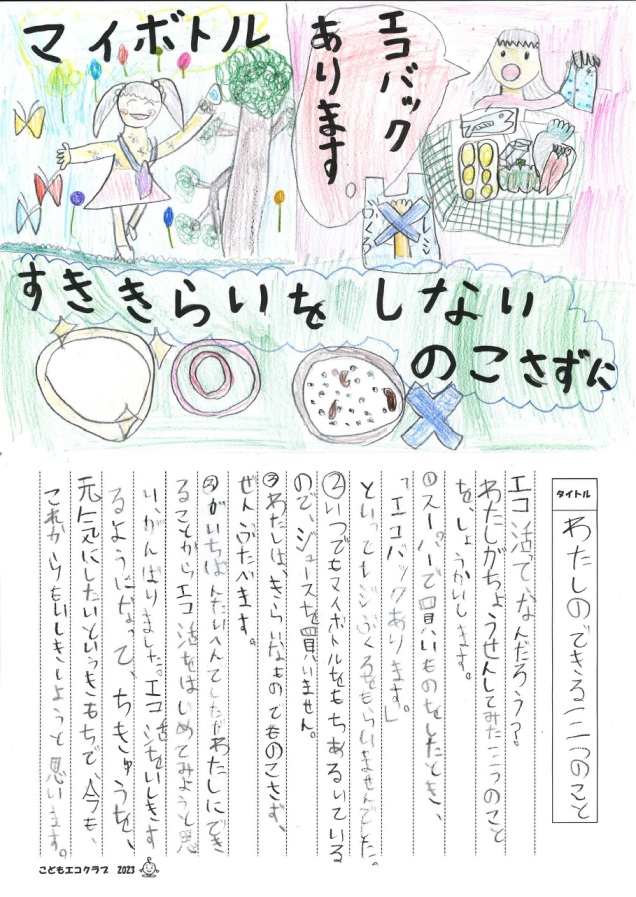 マイボトル
エコバック
あります
レジ
ぶくろ
すききらいを しない
のこさずに
タイトル
わたしのできる三つのこと
エコ活って、なんだろう？
わたしがちょうせんしてみた三つのこと
を、しょうかいします。
①スーパーで買いものをしたとき、
「エコバックあります。」
といってレジぶくろをもらいませんでした。
②いつでもマイボトルをもちあるいている
ので、ジュースを買いません。
③わたしは、きらいなものでものこさず、
ぜんぶたべます。
③がいちばんたいへんでしたがわたしにでき
ることからエコ活をはじめてみようと思
い、がんばりました。エコ活をいしきす
るようになって、ちきゅうを、
元気にしたいといっきもちで、今も、
これからもいしきしようと思います。
こどもエコクラブ 2023